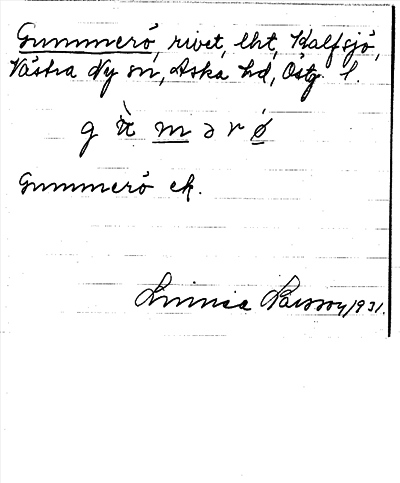 Gummerö, rivet, lht, Kalfsjö,
Västra Ny sn, Aska hd, Östg. l.
Gummerö ek.
Linnea Larsson, 1931.